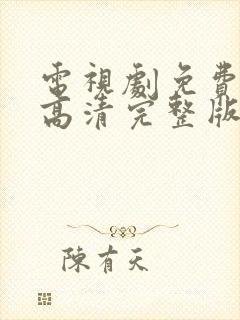 電視劇免費
高清完整版
陳有天